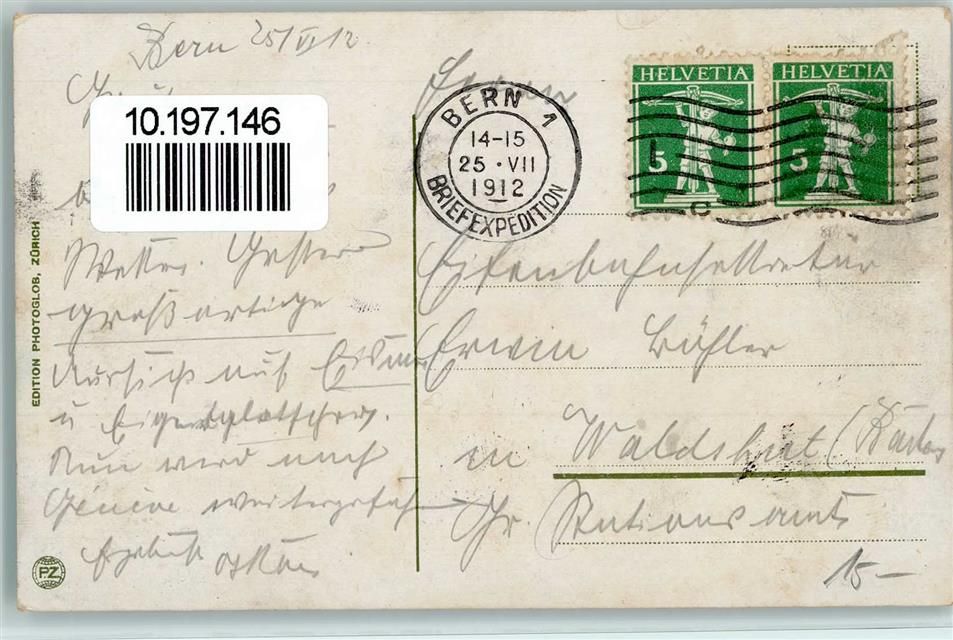 Bern 25/VII 12
10.197.146
Wetter. Gestern
großartige
Aussicht auf Eismeer
u Eigergletscher.
Nun wird nach
Genève weitergefahren
EDITION PHOTOGLOB, ZÜRICH
PZ
BERN 1
14-15
25·VII
1912
BRIEFEXPEDITION
HELVETIA
5
HELVETIA
5
Herrn
Eisenbahnsekretär
Erwin Bühler
in Waldshut (Baden
Gr. Stationsamt
15-